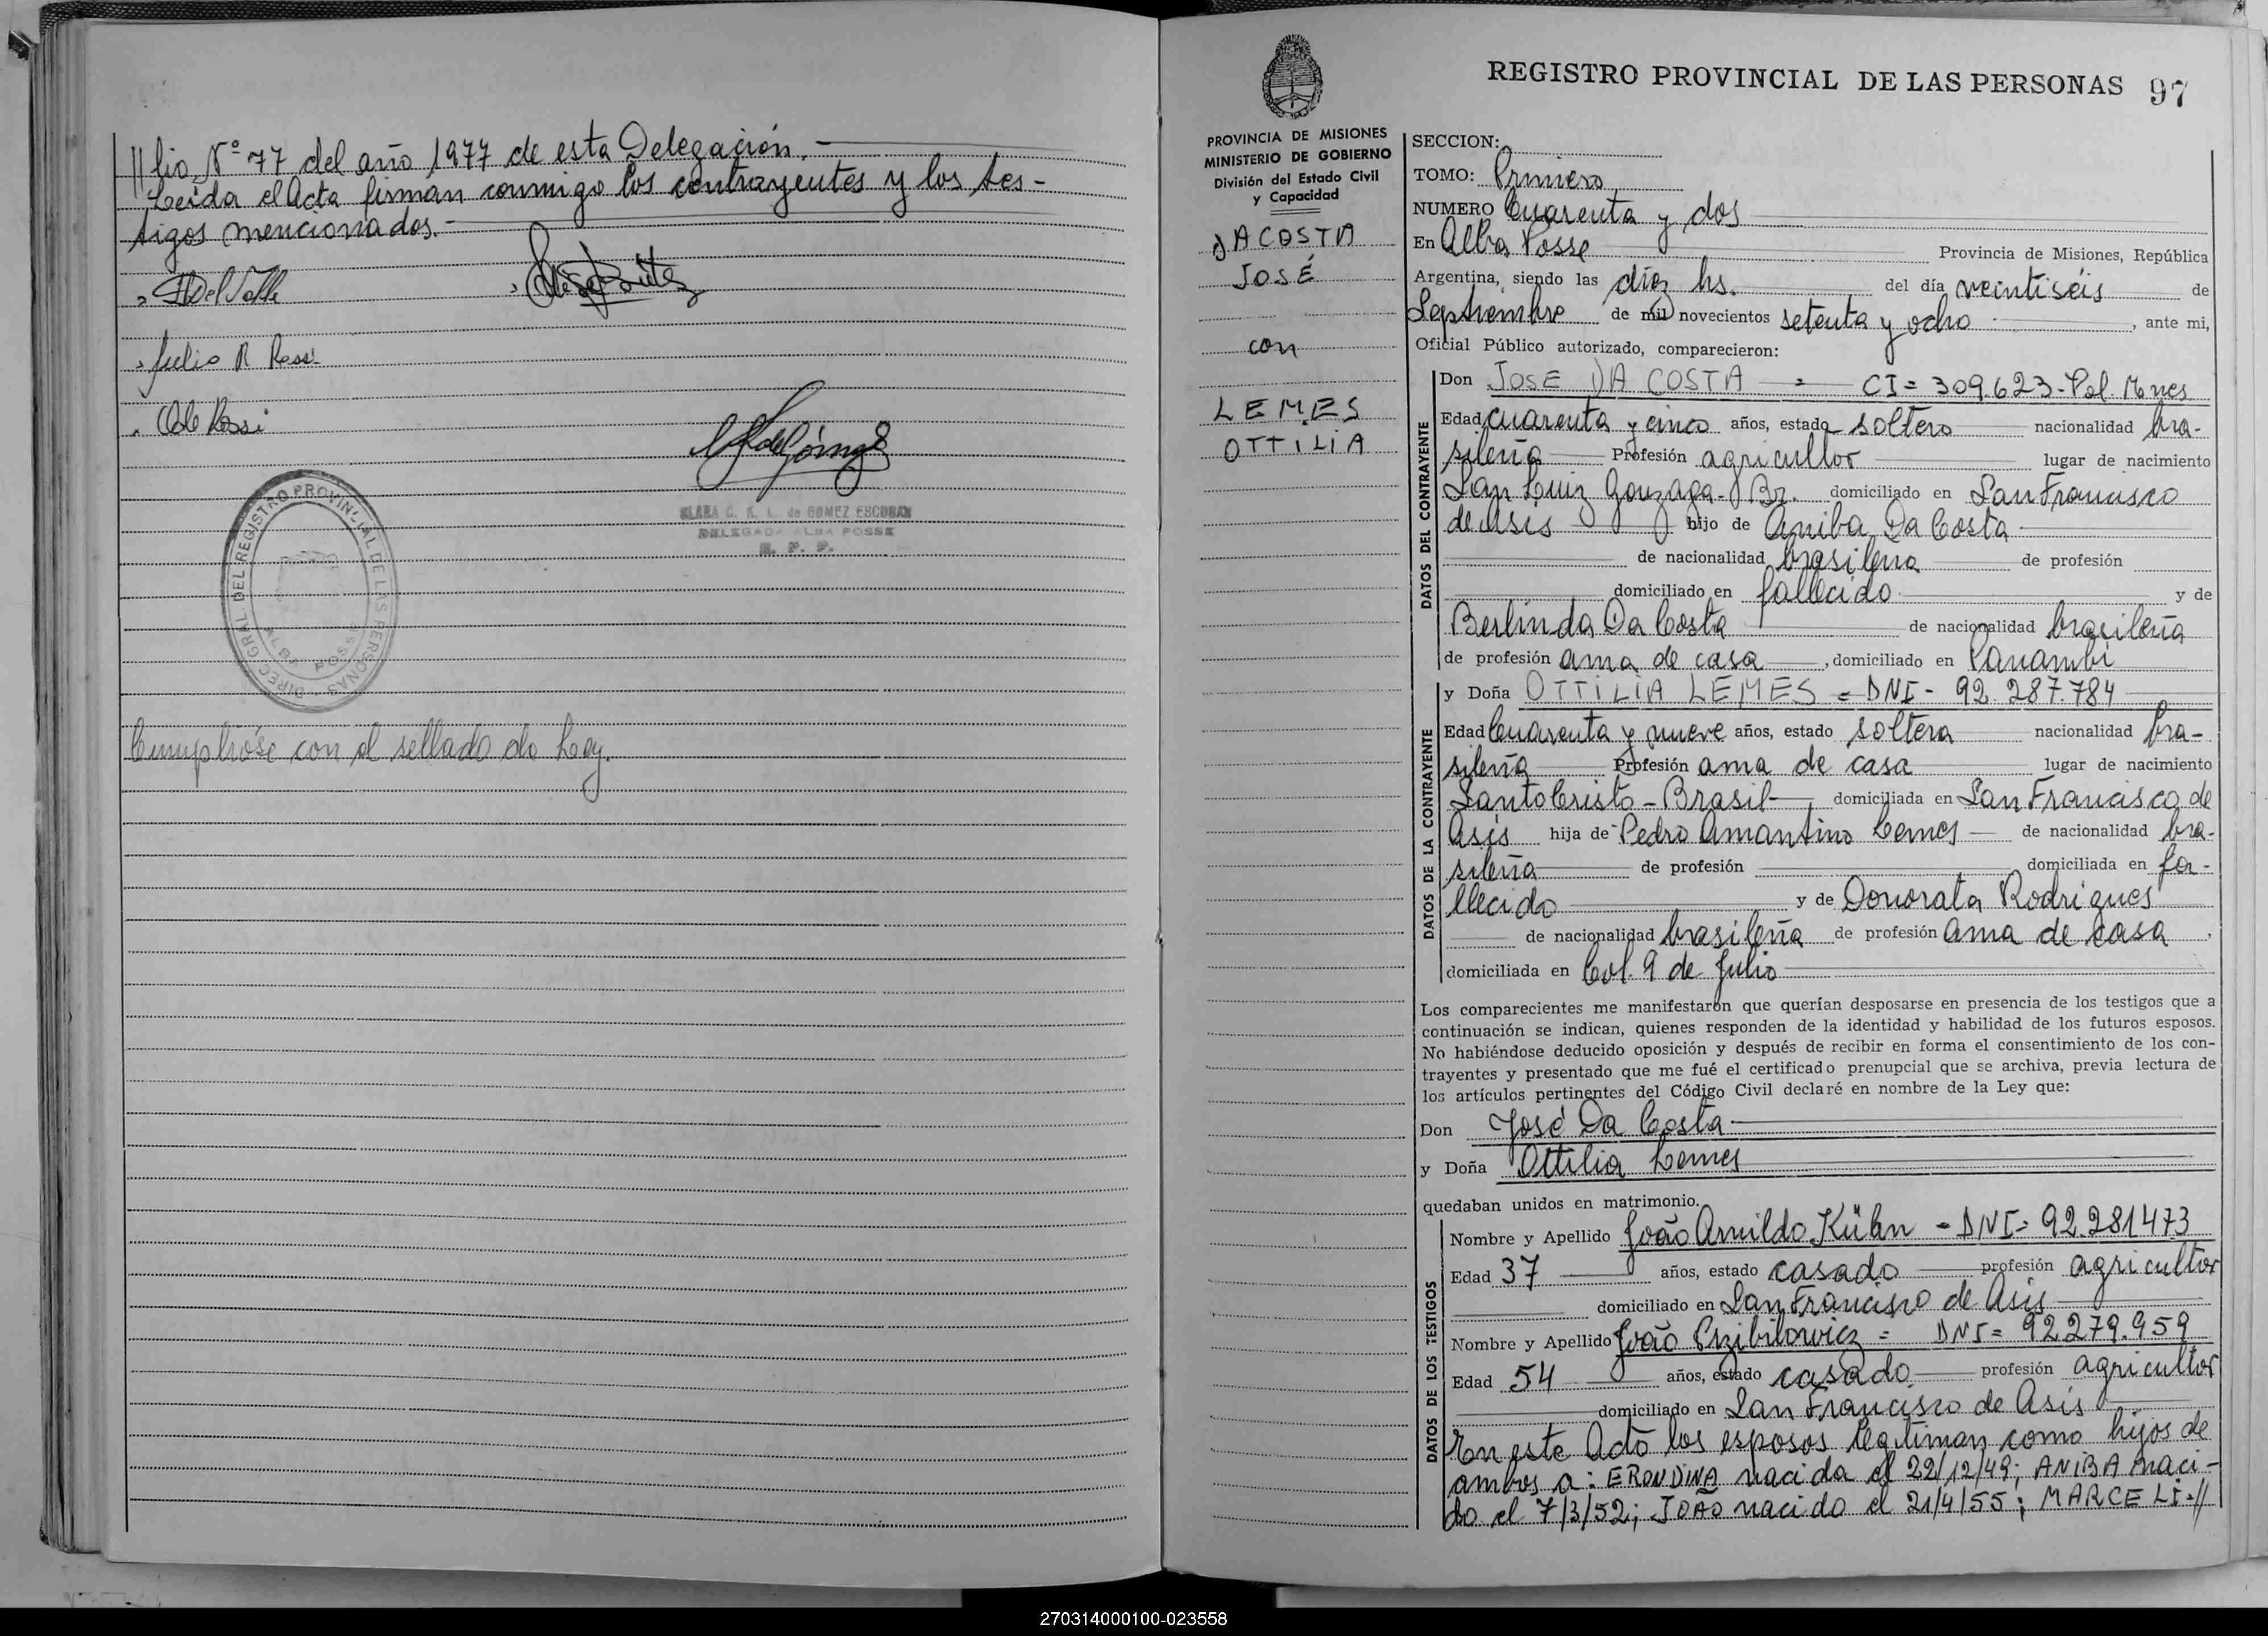 //lio Nº 77 del año 1977 de esta Delegación.-
Leída el Acta firman conmigo los contrayentes y los tes-
tigos mencionados.-
Julio R Rossi
KLARA C. K. L. de GOMEZ ESCOBAR
DELEGADA ALBA POSSE
R. P. P.
DIREC. GRAL DEL REGISTRO PROVINCIAL DE LAS PERSONAS -
ALBA POSSE
Cumplióse con el sellado de Ley.
REGISTRO PROVINCIAL DE LAS PERSONAS 97
PROVINCIA DE MISIONES
MINISTERIO DE GOBIERNO
División del Estado Civil
y Capacidad
DA COSTA
JOSÉ
con
LEMES
OTTILIA
SECCION:
TOMO: Primero
NUMERO Cuarenta y dos
En Alba Posse Provincia de Misiones, República
Argentina, siendo las diez hs. del día veintiséis de
Septiembre de mil novecientos setenta y ocho, ante mi,
Oficial Público autorizado, comparecieron:
DATOS DEL CONTRAYENTE
Don JOSE DA COSTA = CI= 309.623-Pol. Mnes
Edad cuarenta y cinco años, estado soltero nacionalidad bra-
sileña Profesión agricultor lugar de nacimiento
San Luiz Gonzaga-Br. domiciliado en San Francisco
de Asis hijo de Aniba Da Costa
de nacionalidad brasilena de profesión
domiciliado en fallecido y de
Berlinda Da Costa de nacionalidad brasileña
de profesión ama de casa, domiciliado en Panambi
DATOS DE LA CONTRAYENTE
y Doña OTTILIA LEMES = DNI- 92.287.784
Edad Cuarenta y nueve años, estado soltera nacionalidad bra-
sileña Profesión ama de casa lugar de nacimiento
Santo Cristo - Brasil-, domiciliada en San Francisco de
Asis hija de Pedro Amantino Lemes de nacionalidad bra-
sileña de profesión domiciliada en fa-
llecido y de Donorata Rodrigues
de nacionalidad brasileña de profesión ama de casa,
domiciliada en Col. 9 de Julio
Los comparecientes me manifestaron que querían desposarse en presencia de los testigos que a
continuación se indican, quienes responden de la identidad y habilidad de los futuros esposos.
No habiéndose deducido oposición y después de recibir en forma el consentimiento de los con-
trayentes y presentado que me fué el certificado prenupcial que se archiva, previa lectura de
los artículos pertinentes del Código Civil declaré en nombre de la Ley que:
Don José Da Costa
y Doña Ottilia Lemes
quedaban unidos en matrimonio.
DATOS DE LOS TESTIGOS
Nombre y Apellido João Arnildo Kühn - DNI= 92.281473
Edad 37 años, estado casado profesión agricultor
domiciliado en San Francisco de Asis
Nombre y Apellido João Przibilowicz = DNI= 92279.959
Edad 54 años, estado casado profesión agricultor
domiciliado en San Francisco de Asis
En este Acto los esposos legitiman como hijos de
ambos a: ERONDINA nacida el 22/12/49; ANIBA naci-
do el 7/3/52; JOÃO nacido el 21/4/55; MARCELI-//
270314000100-023558